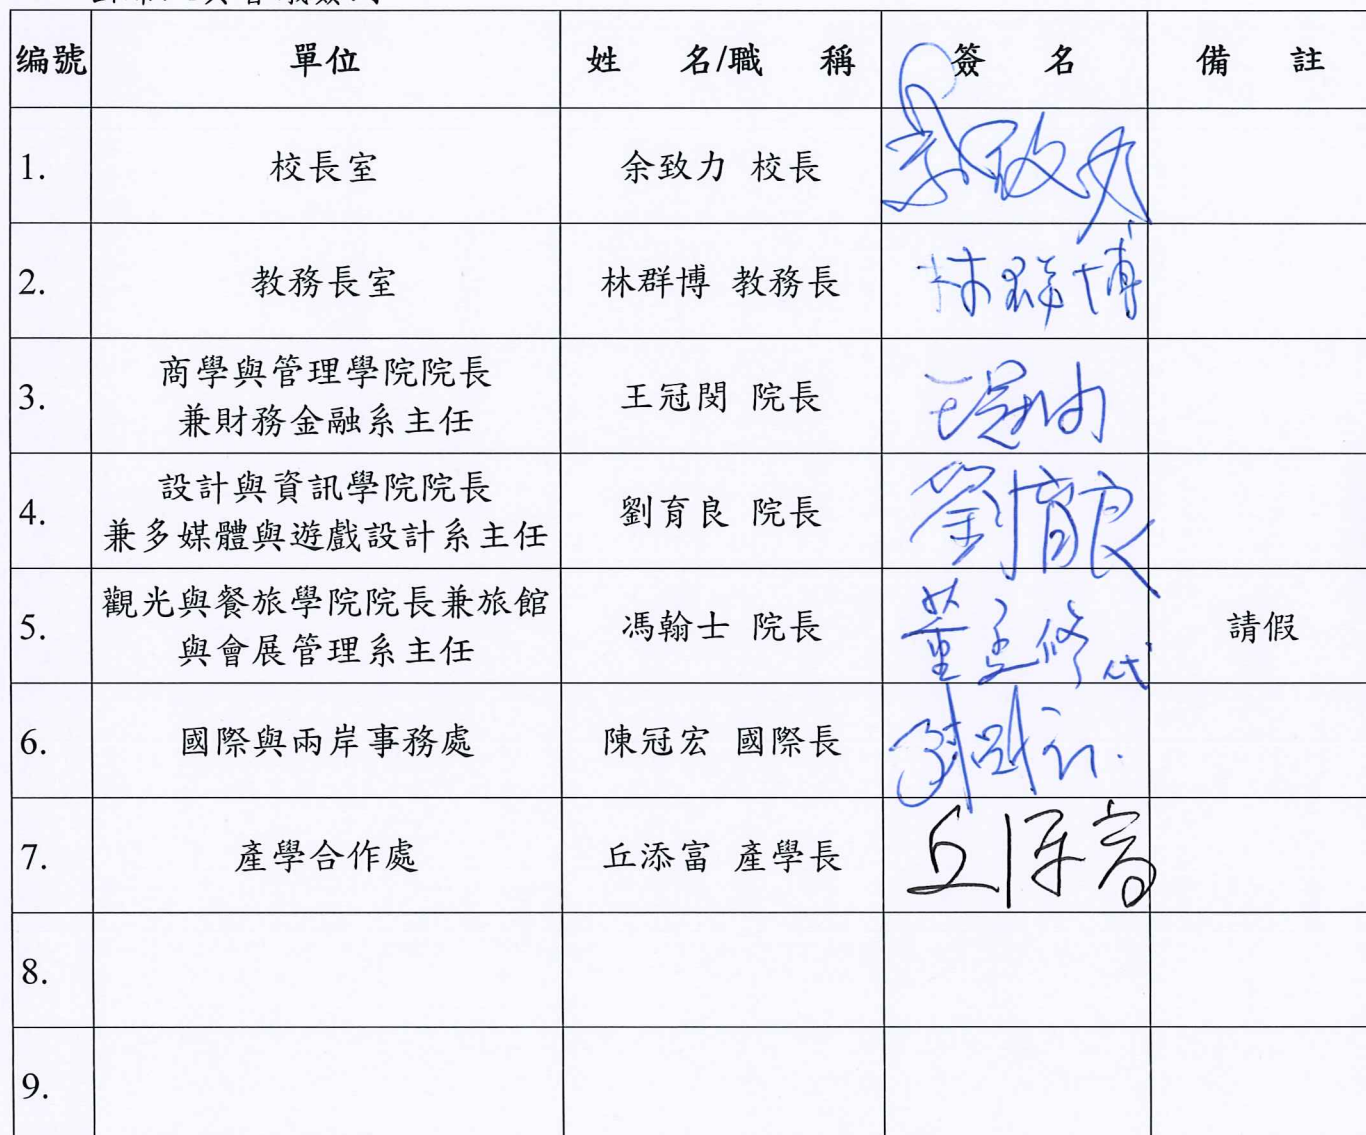 编號 單位 姓 名/職 稱 簽 名 備 註
1. 校長室 余致力 校長 余致力
2. 教務長室 林群博 教務長 林群博
3. 商學與管理學院院長
兼財務金融系主任 王冠閔 院長 王冠閔
4. 設計與資訊學院院長
兼多媒體與遊戲設計系主任 劉育良 院長 劉育良
5. 觀光與餐旅學院院長兼旅館
與會展管理系主任 馮翰士 院長 代 請假
6. 國際與兩岸事務處 陳冠宏 國際長
7. 產學合作處 丘添富 產學長 丘添富
8.
9.